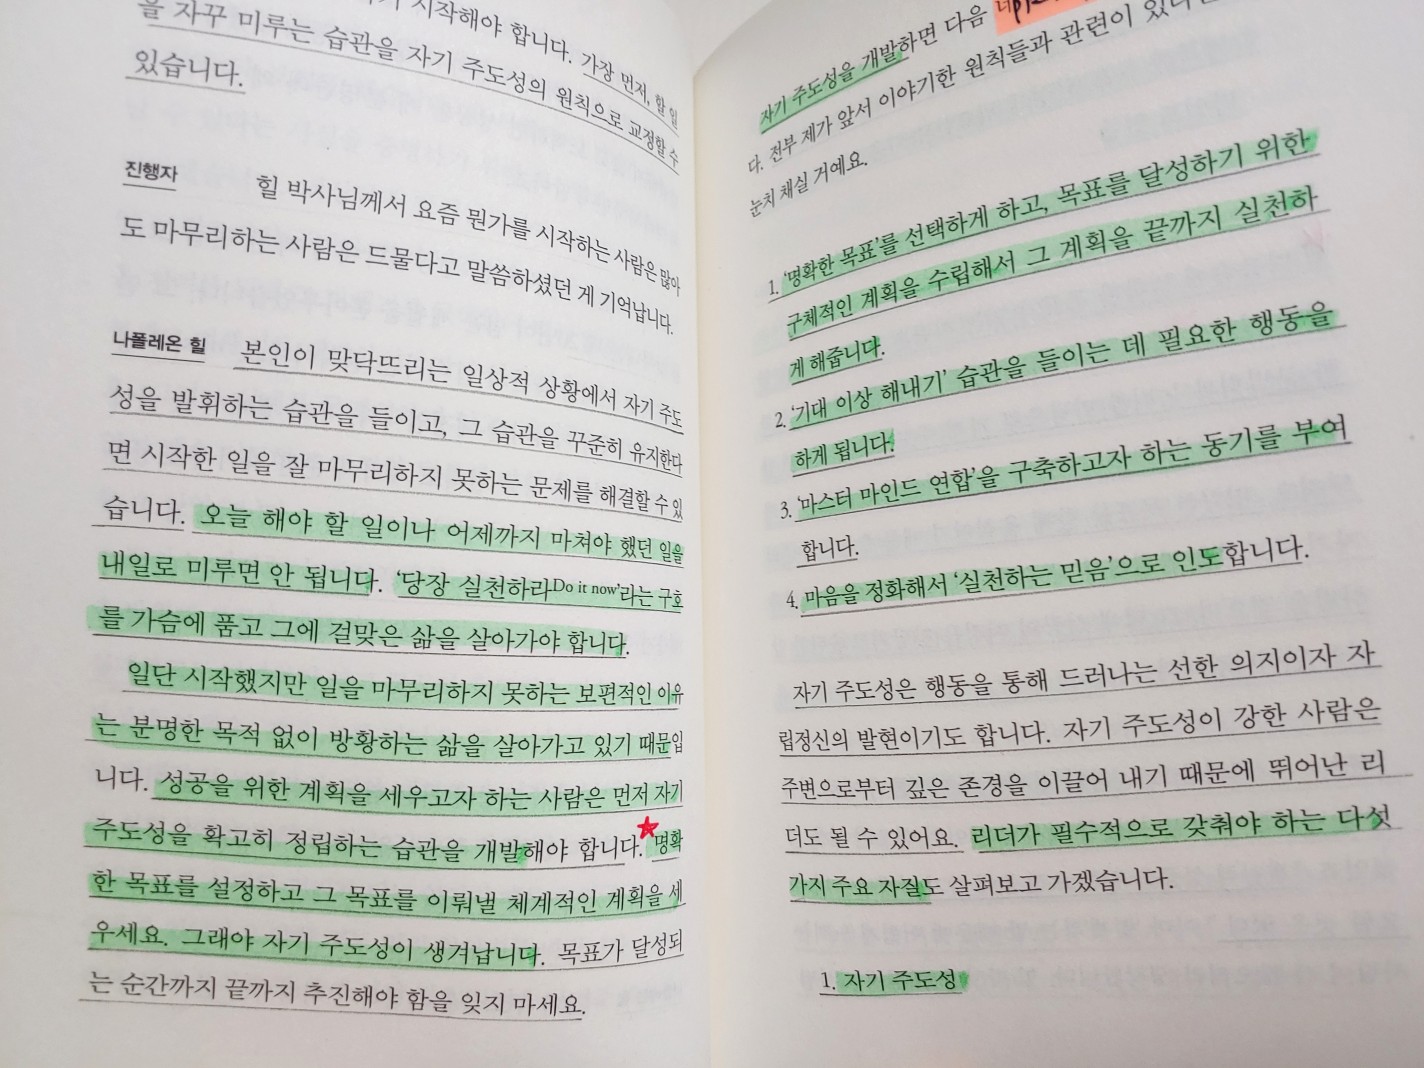 시작해야 합니다. 가장 먼저, 할 일
을 자꾸 미루는 습관을 자기 주도성의 원칙으로 교정할 수
있습니다.
진행자 힐 박사님께서 요즘 뭔가를 시작하는 사람은 많아
도 마무리하는 사람은 드물다고 말씀하셨던 게 기억납니다.
나폴레온 힐 본인이 맞닥뜨리는 일상적 상황에서 자기 주도
성을 발휘하는 습관을 들이고, 그 습관을 꾸준히 유지한다
면 시작한 일을 잘 마무리하지 못하는 문제를 해결할 수 있
습니다. 오늘 해야 할 일이나 어제까지 마쳐야 했던 일을
내일로 미루면 안 됩니다. ‘당장 실천하라Do it now’라는 구호
를 가슴에 품고 그에 걸맞은 삶을 살아가야 합니다.
일단 시작했지만 일을 마무리하지 못하는 보편적인 이유
는 분명한 목적 없이 방황하는 삶을 살아가고 있기 때문입
니다. 성공을 위한 계획을 세우고자 하는 사람은 먼저 자기
주도성을 확고히 정립하는 습관을 개발해야 합니다. 명확
한 목표를 설정하고 그 목표를 이뤄낼 체계적인 계획을 세
우세요. 그래야 자기 주도성이 생겨납니다. 목표가 달성되
는 순간까지 끝까지 추진해야 함을 잊지 마세요.
자기 주도성을 개발하면 다음
다. 전부 제가 앞서 이야기한 원칙들과 관련이 있
눈치 채실 거예요.
1. ‘명확한 목표’를 선택하게 하고, 목표를 달성하기 위한
구체적인 계획을 수립해서 그 계획을 끝까지 실천하
게 해줍니다.
2. ‘기대 이상 해내기’ 습관을 들이는 데 필요한 행동을
하게 됩니다.
3. ‘마스터 마인드 연합’을 구축하고자 하는 동기를 부여
합니다.
4. 마음을 정화해서 ‘실천하는 믿음’으로 인도합니다.
자기 주도성은 행동을 통해 드러나는 선한 의지이자 자
립정신의 발현이기도 합니다. 자기 주도성이 강한 사람은
주변으로부터 깊은 존경을 이끌어 내기 때문에 뛰어난 리
더도 될 수 있어요. 리더가 필수적으로 갖춰야 하는 다섯
가지 주요 자질도 살펴보고 가겠습니다.
1. 자기 주도성